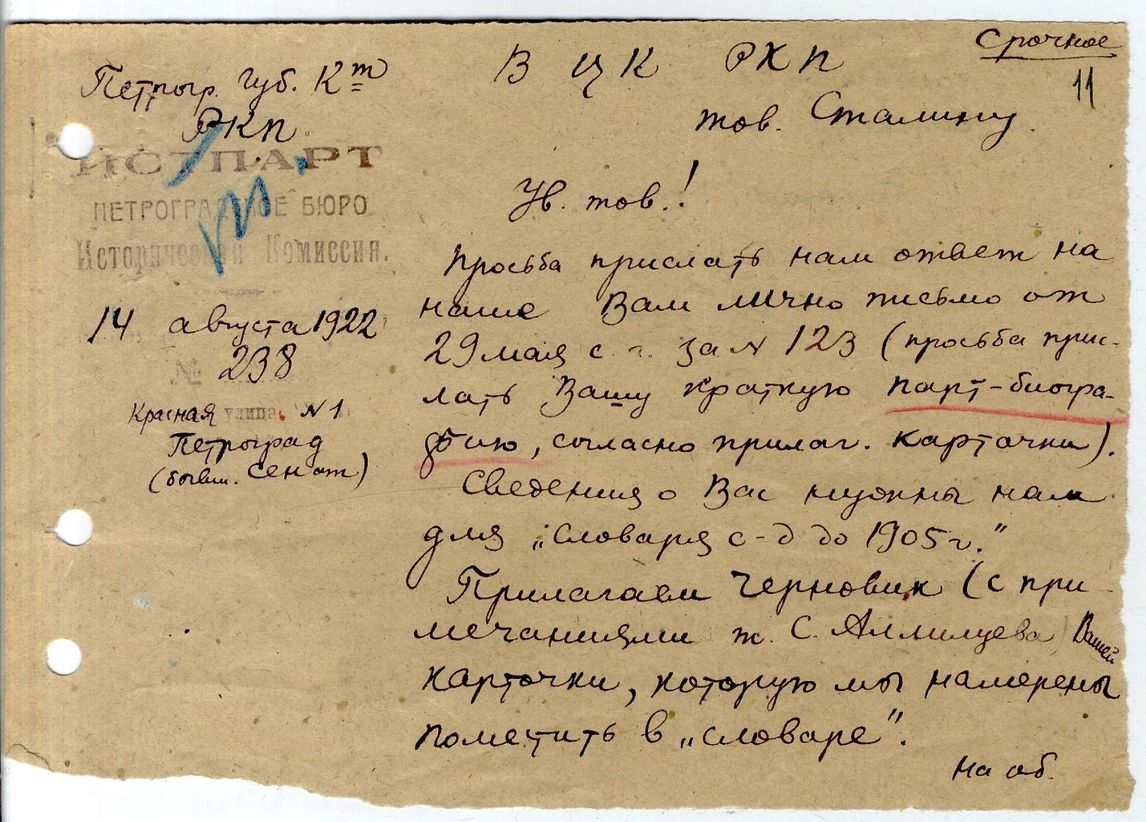 Срочное
11
Петрогр. Губ. Кт
РКП.
ИСТПАРТ
ПЕТРОГРАДСКОЕ БЮРО
Историческая Комиссия.
14 августа 1922
№ 238
Красная улица. N 1
Петроград
(бывш. Сенат)
В ЦК РКП
тов. Сталину.
Ув. тов.!
Просьба прислать нам ответ на
наше Вам лично письмо от
29 мая с. г. за N 123 (просьба прис-
лать Вашу краткую парт-биогра-
фию, согласно прилаг. карточки).
Сведения о Вас нужны нам
для „Словаря с-д до 1905 г."
Прилагаем черновик (с при-
мечаниями т. С. Аллилуева) Вашей
карточки, которую мы намерены
поместить в „Словаре".
на об.